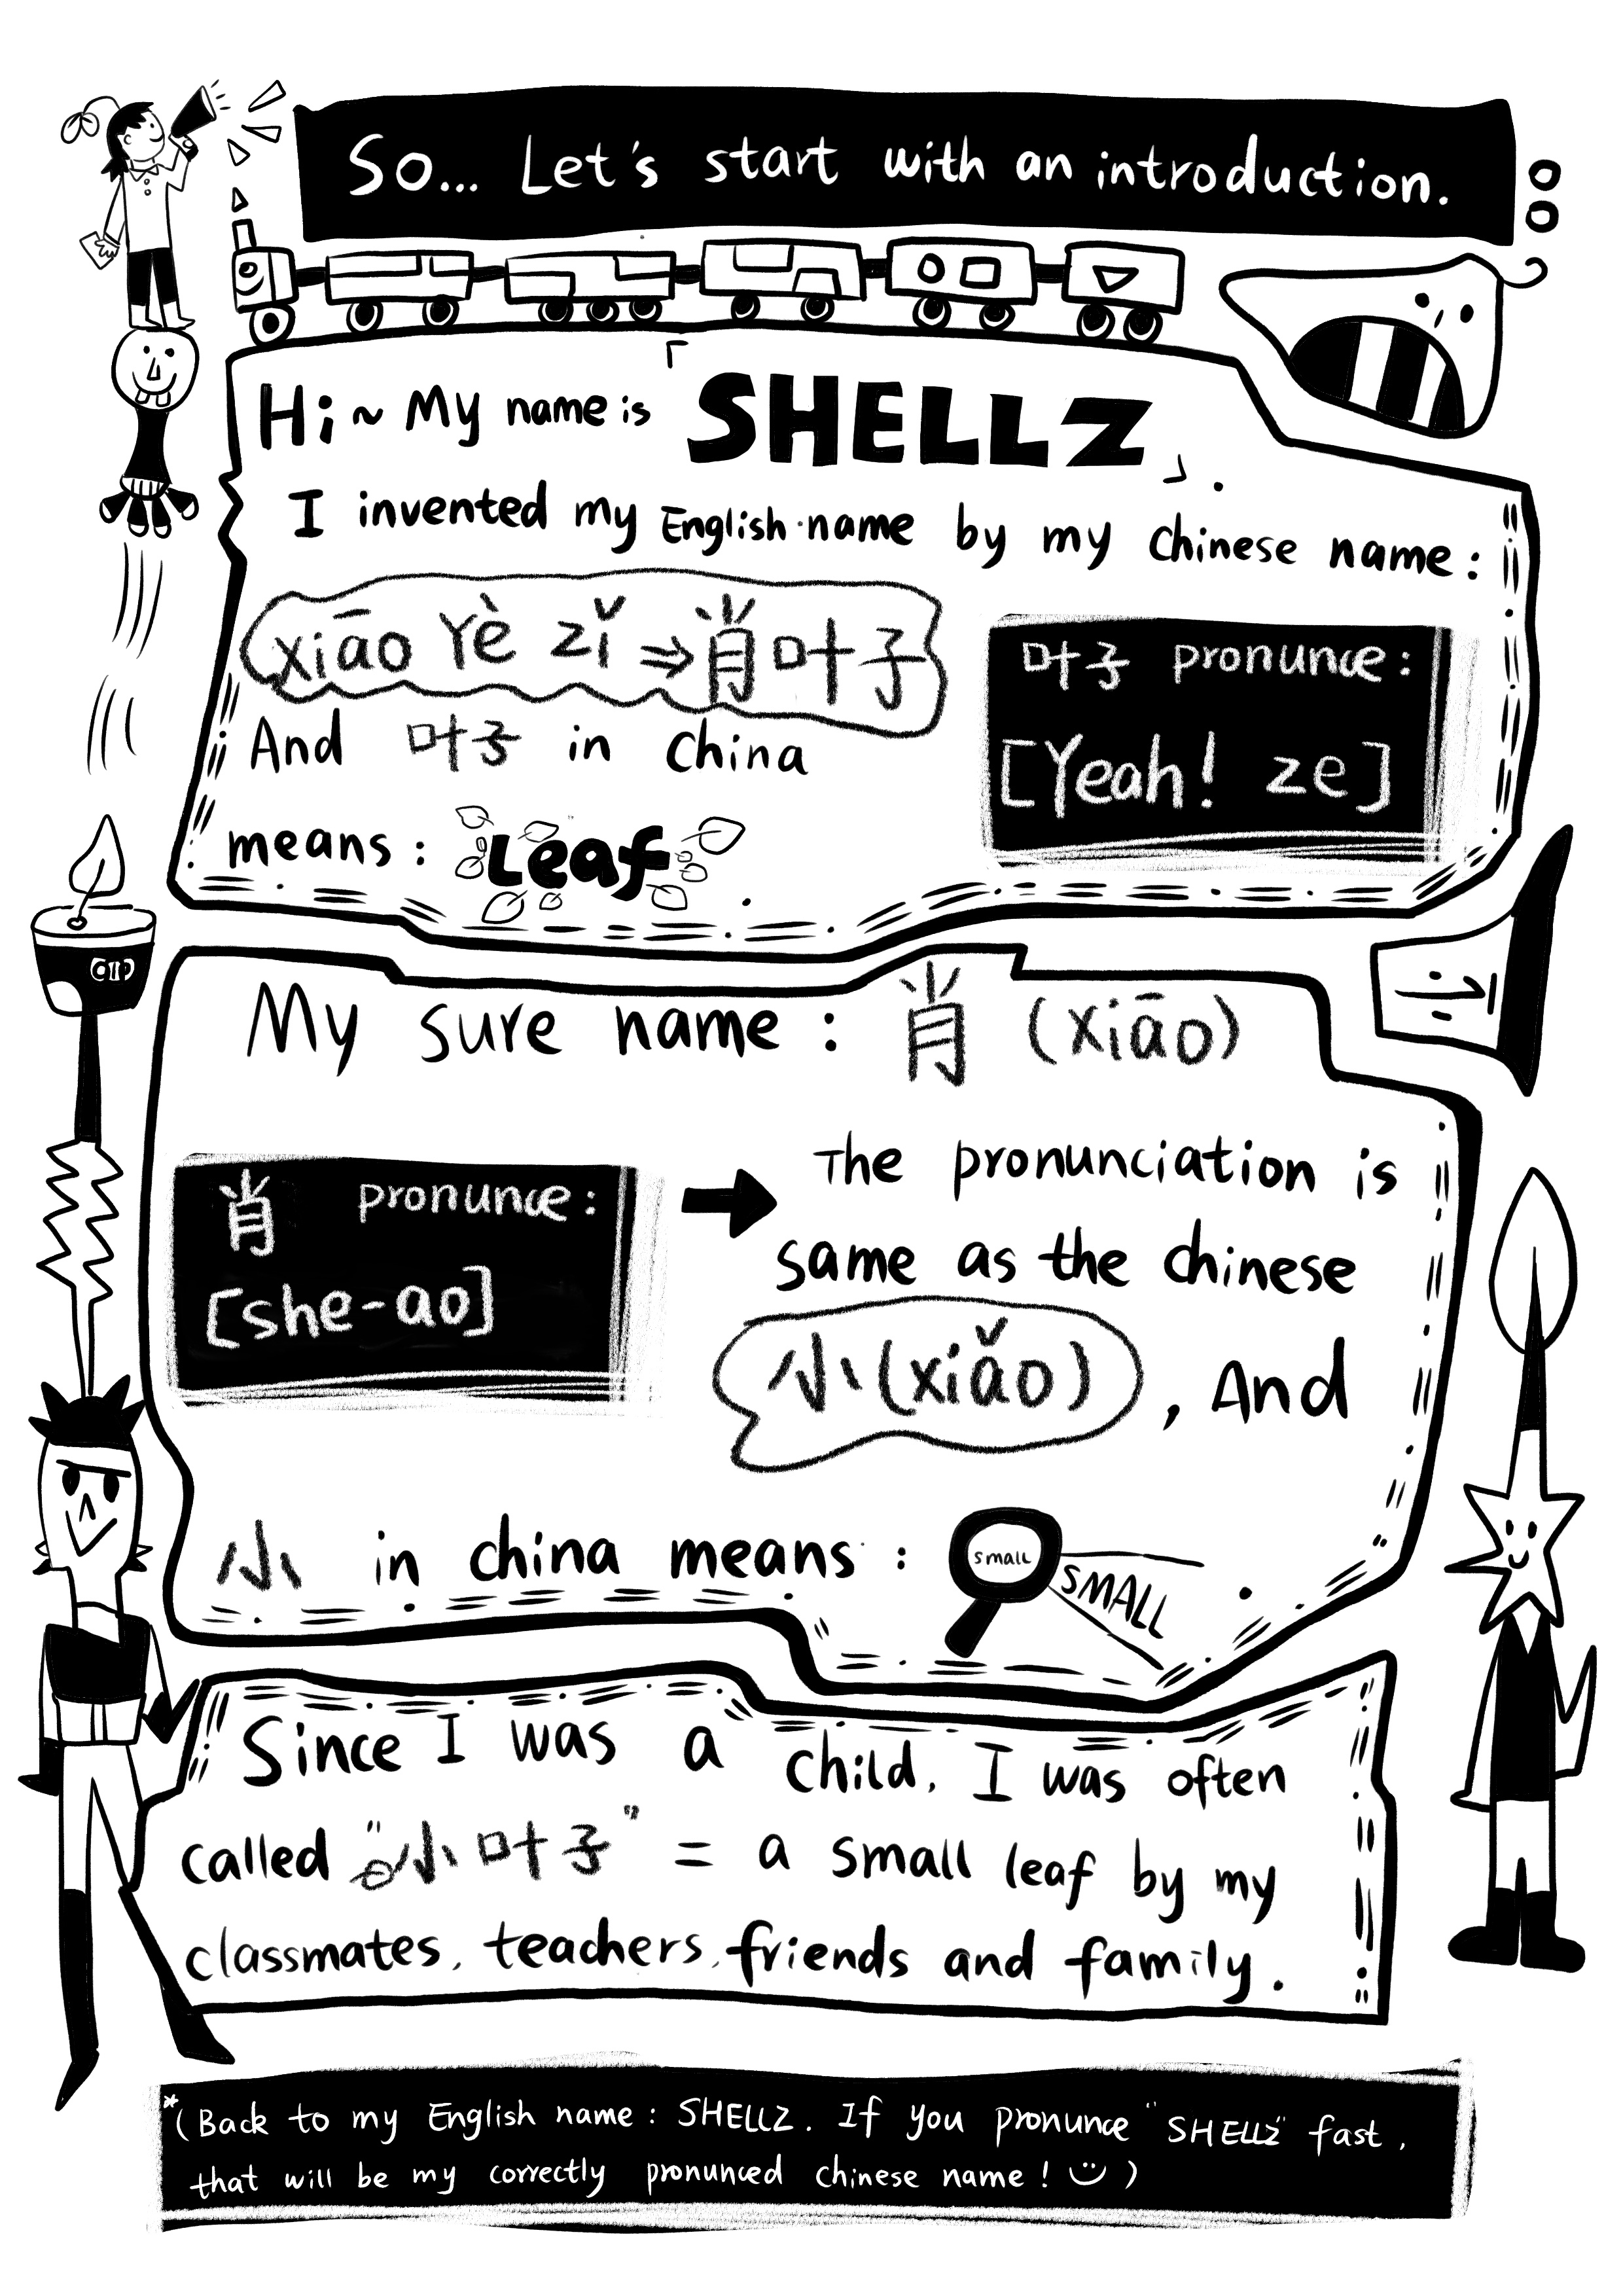 So... Let's start with an introduction.
Hi~ My name is 「SHELLZ」.
I invented my English name by my chinese name:
xiāo Yè zǐ ⇒ 肖叶子
叶子 pronunce:
[Yeah! ze]
And 叶子 in china
means: Leaf.
My sure name: 肖 (xiāo)
肖 pronunce:
[she-ao]
The pronunciation is
same as the chinese
小(xiǎo), And
小 in china means: small SMALL.
Since I was a child, I was often
called "小叶子" = a small leaf by my
classmates, teachers, friends and family.
*(Back to my English name: SHELLZ. If you pronunce "SHELLZ" fast,
that will be my correctly pronunced chinese name! )